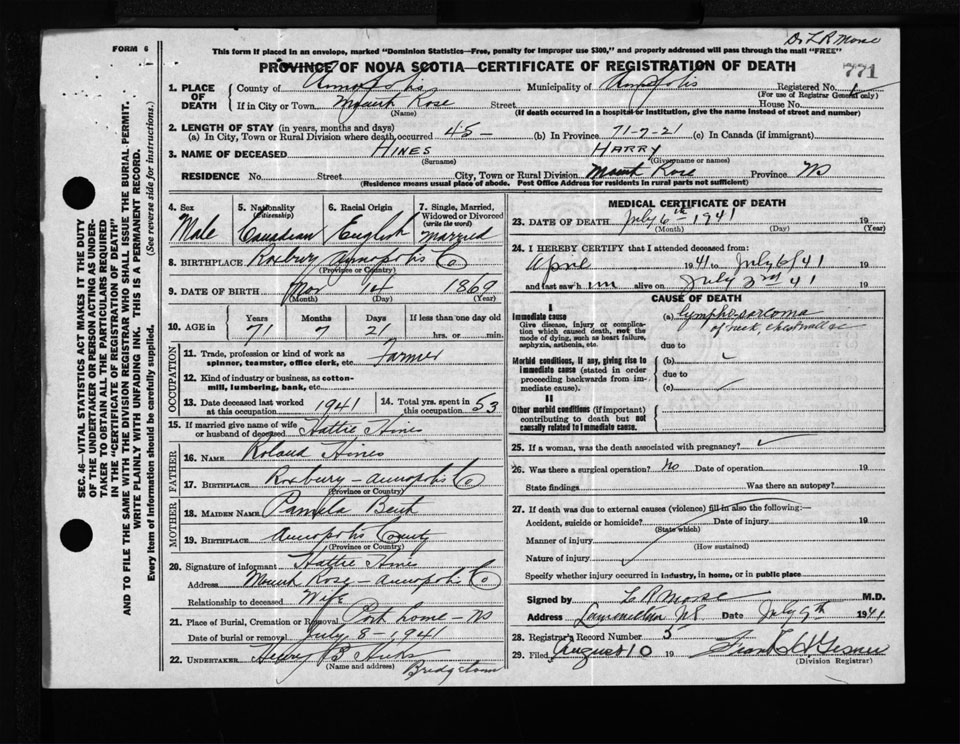 Dr L R Morse
FORM 6
This form if placed in an envelope, marked "Dominion Statistics—Free, penalty for improper use $300," and properly addressed will pass through the mail "FREE"
PROVINCE OF NOVA SCOTIA—CERTIFICATE OF REGISTRATION OF DEATH
771
1. PLACE OF DEATH
County of Annapolis Municipality of Annapolis Registered No. 1
(For use of Registrar General only)
If in City or Town Mount Rose Street House No.
(Name) (If death occurred in a hospital or institution, give the name instead of street and number)
2. LENGTH OF STAY (in years, months and days)
(a) In City, Town or Rural Division where death occurred 45 — (b) In Province 71-7-21 (c) In Canada (if immigrant)
3. NAME OF DECEASED HINES HARRY
(Surname) (Given name or names)
RESIDENCE No. Street City, Town or Rural Division Mount Rose Province NS
(Residence means usual place of abode. Post Office Address for residents in rural parts not sufficient)
4. Sex
Male
5. Nationality
(Citizenship)
Canadian
6. Racial Origin
English
7. Single, Married, Widowed or Divorced
(write the word)
Married
8. BIRTHPLACE Roxbury Annapolis Co
(Province or Country)
9. DATE OF BIRTH Nov 14 1869
(Month) (Day) (Year)
10. AGE in
Years Months Days If less than one day old
71 7 21 hrs. or min.
OCCUPATION
11. Trade, profession or kind of work as spinner, teamster, office clerk, etc. Farmer
12. Kind of industry or business, as cotton-mill, lumbering, bank, etc.
13. Date deceased last worked at this occupation 1941
14. Total yrs. spent in this occupation 53
15. If married give name of wife or husband of deceased Hattie Hines
FATHER
16. NAME Roland Hines
17. BIRTHPLACE Roxbury — Annapolis Co
(Province or Country)
MOTHER
18. MAIDEN NAME Pamela
19. BIRTHPLACE Annapolis County
(Province or Country)
20. Signature of informant Hattie Hines
Address Mount Rose — Annapolis Co
Relationship to deceased Wife
21. Place of Burial, Cremation or Removal Port Lorne — NS
Date of burial or removal July 8 — 1941
22. UNDERTAKER Henry B Hicks
(Name and address) Bridgetown
MEDICAL CERTIFICATE OF DEATH
23. DATE OF DEATH July 6th 1941 19
(Month) (Day) (Year)
24. I HEREBY CERTIFY that I attended deceased from:
April 1941 to July 6/41 19
and last saw h im alive on July 3rd 41 19
CAUSE OF DEATH
I
Immediate cause
Give disease, injury or complication which caused death, not the mode of dying, such as heart failure, asphyxia, asthenia, etc.
(a) lympho-sarcoma
of neck, chest wall &c
due to
Morbid conditions, if any, giving rise to immediate cause (stated in order proceeding backwards from immediate cause).
(b)
due to
(c)
II
Other morbid conditions (if important) contributing to death but not causally related to immediate cause.
25. If a woman, was the death associated with pregnancy?
26. Was there a surgical operation? no Date of operation 19
State findings Was there an autopsy?
27. If death was due to external causes (violence) fill in also the following:—
Accident, suicide or homicide? Date of injury 19
(State which)
Manner of injury
(How sustained)
Nature of injury
Specify whether injury occurred in industry, in home, or in public place
Signed by L R Morse M.D.
Address Lawrencetown NS Date July 9th 1941
28. Registrar's Record Number 5
29. Filed August 10 19
(Division Registrar)
SEC. 46—VITAL STATISTICS ACT MAKES IT THE DUTY
OF THE UNDERTAKER OR PERSON ACTING AS UNDER-
TAKER TO OBTAIN ALL THE PARTICULARS REQUIRED
IN THE "CERTIFICATE OF REGISTRATION OF DEATH"
AND TO FILE THE SAME WITH THE DIVISION REGISTRAR WHO SHALL ISSUE THE BURIAL PERMIT.
WRITE PLAINLY WITH UNFADING INK. THIS IS A PERMANENT RECORD.
Every item of information should be carefully supplied. (See reverse side for instructions.)